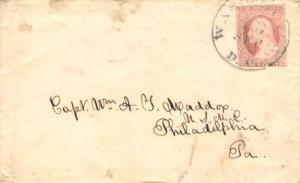 WA
D.C.
Capt. Wm A. T. Maddox.
U. S. M. C.
Philadelphia.
Pa.